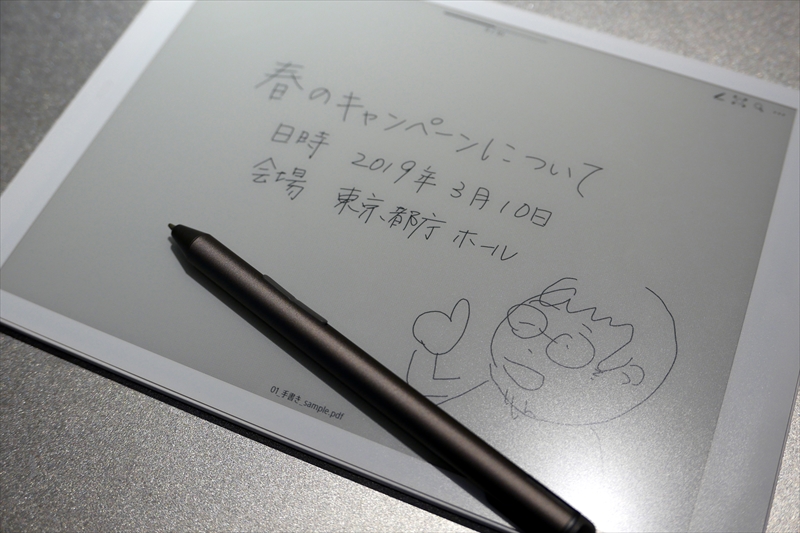 春のキャンペーンについて
日時 2019年3月10日
会場 東京都庁ホール
01_手書き_sample.pdf